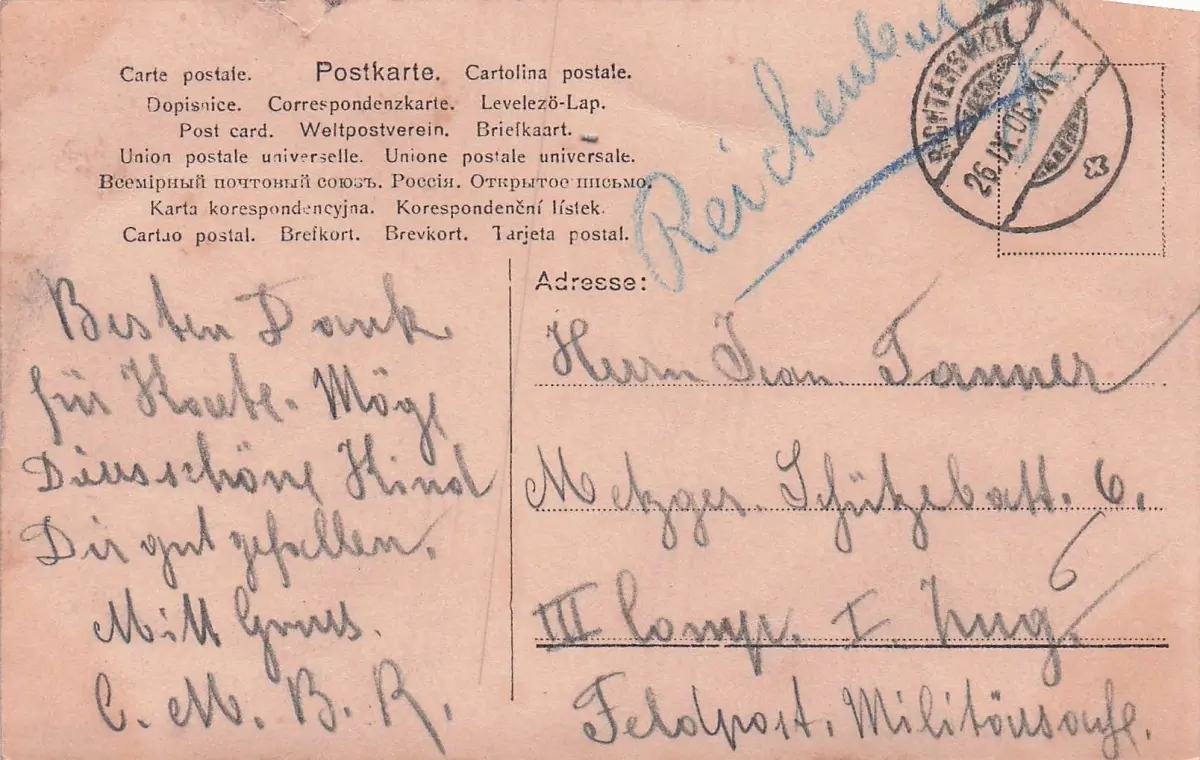 Carte postale. Postkarte. Cartolina postale.
Dopisnice. Correspondenzkarte. Levelező-Lap.
Post card. Weltpostverein. Briefkaart.
Union postale universelle. Unione postale universale.
Всемірный почтовый союзъ. Россія. Открытое письмо.
Karta korespondencyjna. Korespondenční lístek.
Cartao postal. Brefkort. Brevkort. Tarjeta postal.
RICHTERSWEIL
26.IX.06.XI-
Adresse:
Besten Dank
für Karte. Möge
schöne Kind
Dir gut gefallen.
Mitt Gruss.
C. M. B. R.
Herrn Jean Tanner
Metzger. Schützebatt. 6.
6
III Comp. I. Zug.
Feldpost. Militärsache.